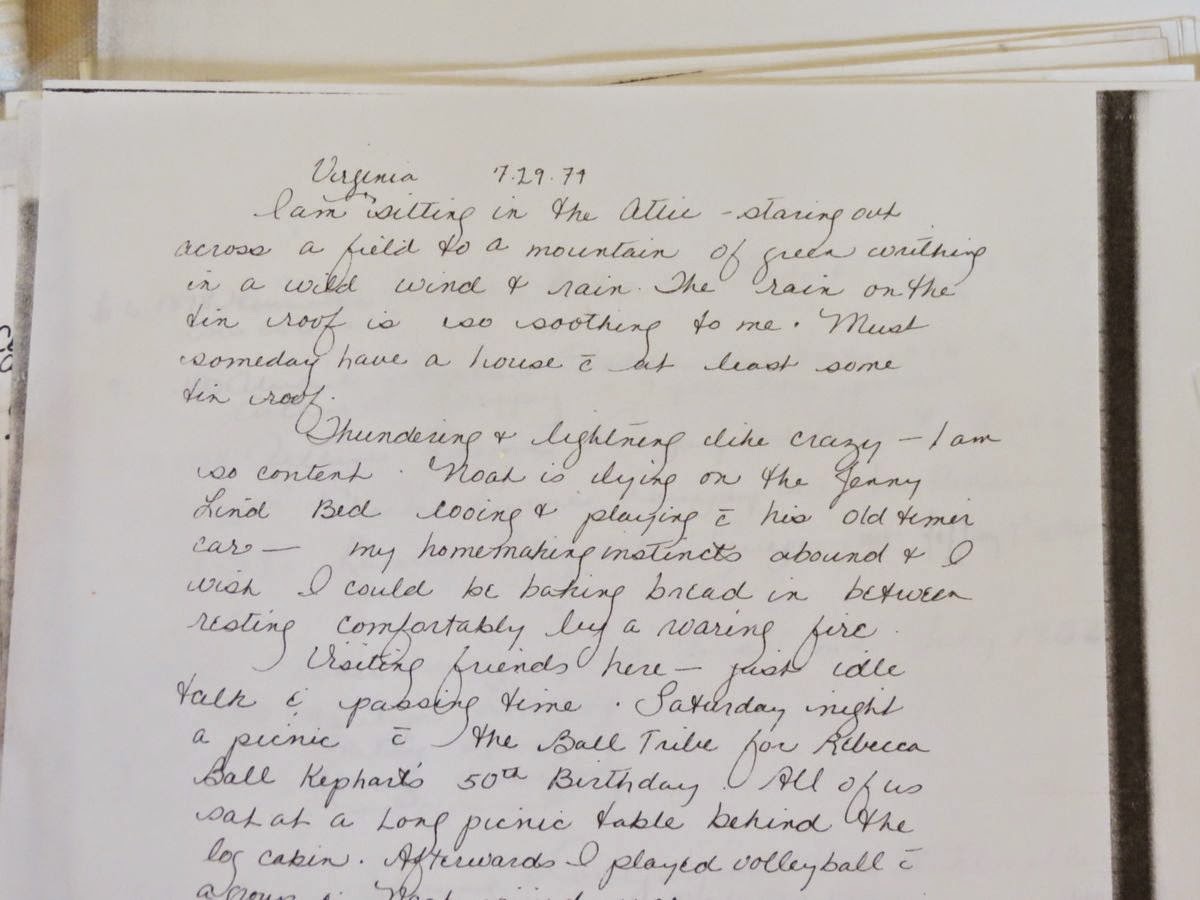 Virginia 7.29.79
I am sitting in the Attic - staring out
across a field to a mountain of green writhing
in a wild wind & rain. The rain on the
tin roof is so soothing to me. Must
someday have a house c̄ at least some
tin roof.
Thundering & lightning like crazy — I am
so content. Noah is lying on the Jenny
Lind Bed cooing & playing c̄ his old timer
car — my homemaking instincts abound & I
wish I could be baking bread in between
resting comfortably by a roaring fire.
Visiting friends here — just idle
talk & passing time. Saturday night
a picnic c̄ the Ball Tribe for Rebecca
Ball Kephart's 50th Birthday. All of us
sat at a long picnic table behind the
log cabin. Afterwards I played volleyball c̄
a group